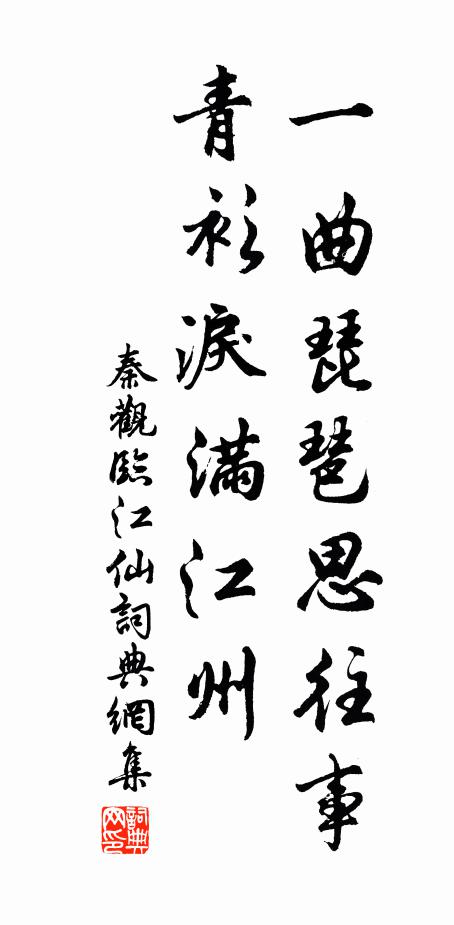 一曲琵琶思往事
青衫淚滿江州
秦觀臨江仙詞典網集
詞典网印